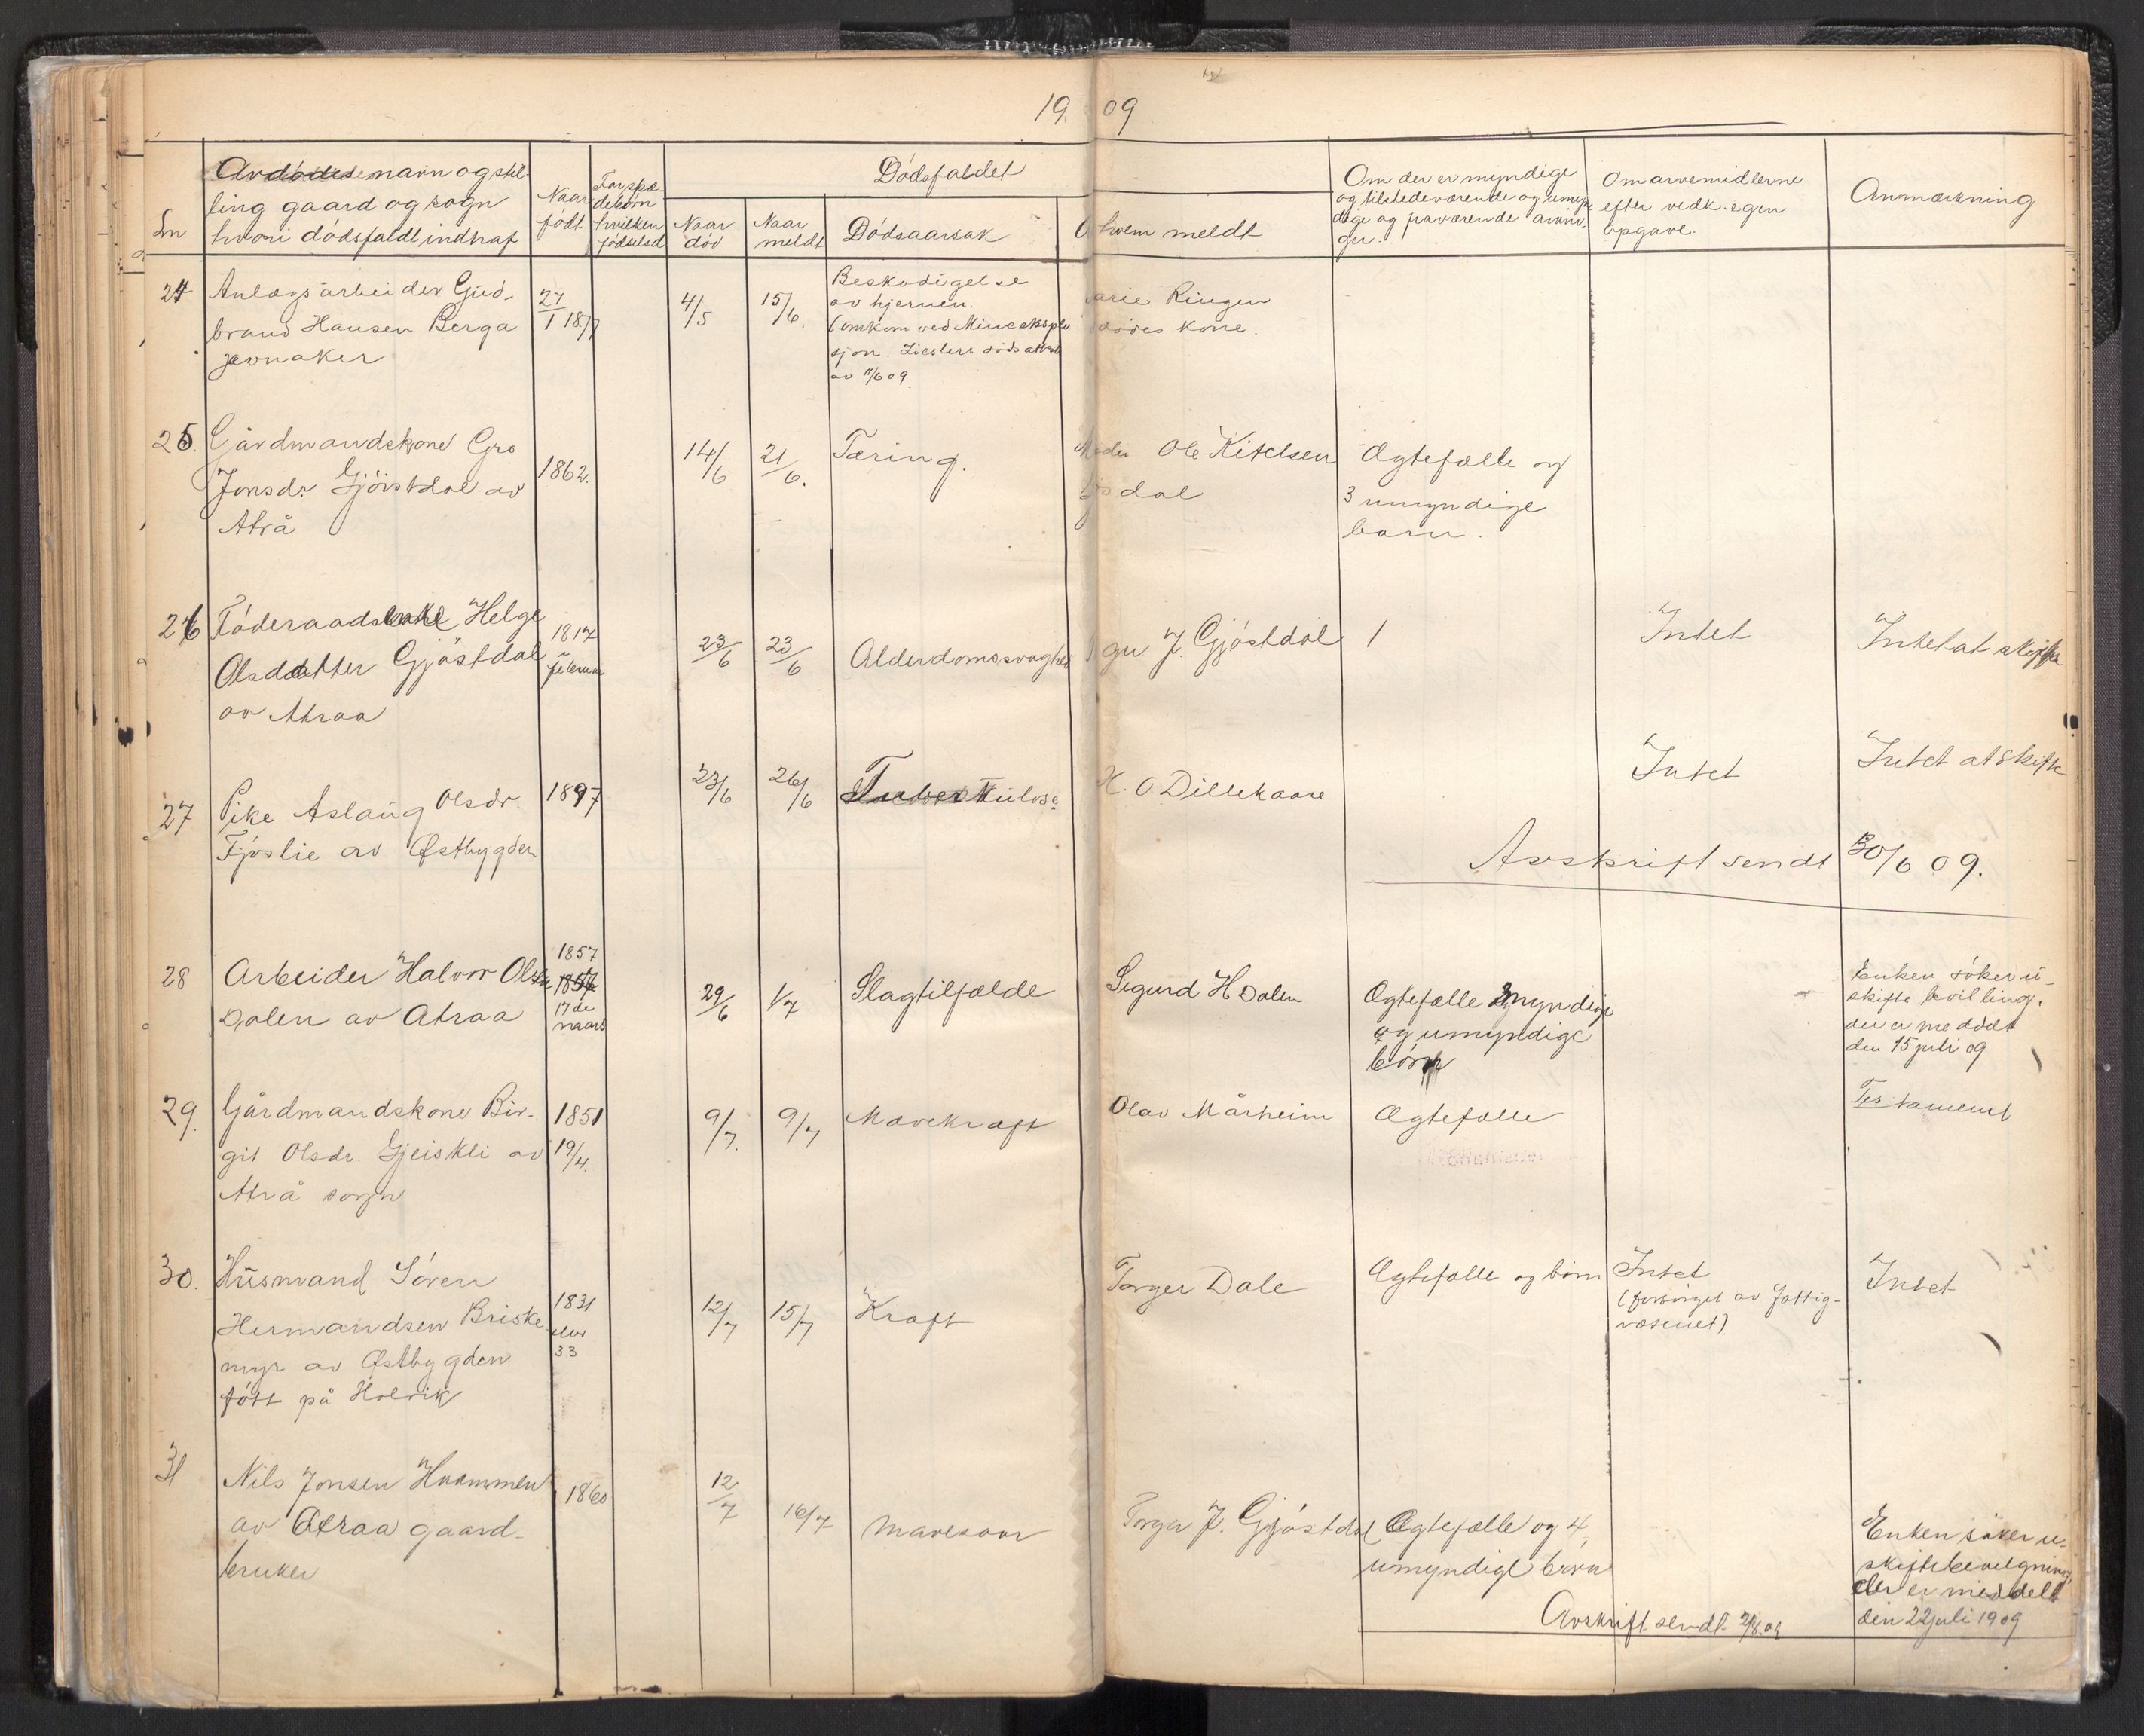 1909
Avdødes navn og stil-
ling gaard og sogn
hvori dødsfaldt indtraf
Ln
Naar
født
For spæ-
debørn
hvilken
fødselsd
Dødsfaldet
Naar
død
Naar
meldt
Dødsaarsak
hvem meldt
Om der er myndige
og tilstedeværende og umyn
dige og fraværende arvin-
ger.
Om arvemidlerne
efter vedk. egen
opgave.
Anmærkning
24
Anlægsarbeider Gud-
brand Hansen Berga
Jevnaker
27/1 1877
4/5
15/6.
Beskadigelse
av hjernen.
(omkom ved Mineeksplo
sjon. dødsattest
av 11/6 09.
arie Ringen
dødes kone.
25.
Gårdmandskone Gro
Jonsdr Gjøistdal av
Atrå
1862.
14/6
21/6.
Tæring.
Ole Kitelsen
dal
Ægtefælle og
3 umyndige
barn.
26
Føderaadsenke Helge
Olsdatter Gjøstdal
av Atraa
1817
februar
23/6
23/6
Alderdomssvaghed
ger J. Gjøstdal
1
Intet
Intet at skifte
27
Pike Aslaug Olsdr.
Fjøslie av Østbygden
1897
23/6
26/6
Tuberkulose
H. O. Dillekaase
Intet
Intet at skifte
Avskrift sendt 30/6 09.
28
Arbeider Halvor Olsen
Dalen av Atraa
1857
17de
mars
29/6
1/7
Slagtilfælde
Sigurd H Dalen
Ægtefælle 3 myndige
og umyndige
børn
Enken søker u-
skifte bevilling,
der er meddelt
den 15 juli 09
29.
Gårdmandskone Bir-
git Olsdr. Gjeiskli av
Atrå sogn
1851
19/4.
9/7.
9/7
Mavekræft
Olav Mårheim
Ægtefælle
Testament
30.
Husmand Søren
Hermandsen Briske-
myr av Østbygden
født på Holvik
1831
eller
33
12/7
15/7
Kræft
Torger Dale
Ægtefælle og børn
Intet
(forsørget av fattig-
væsenet)
Intet
31
Nils Jonsen Hvammen
av Atraa gaard-
bruker
1860
12/7
16/7
Mavesaar
Torger J. Gjøstdal
Ægtefælle og 4
umyndige børn
Enken søker u-
skiftebevilgning
der er meddelt
den 22 juli 1909
Avskrift sendt 2/8.09